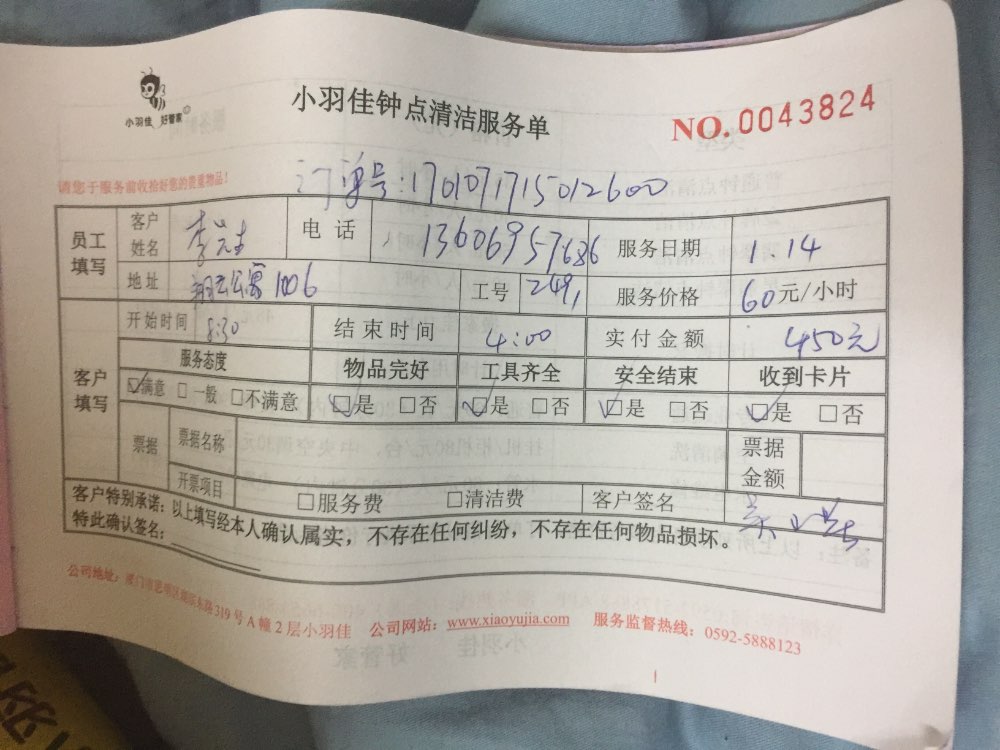 小羽佳 好管家
小羽佳钟点清洁服务单
NO.0043824
请您于服务前收拾好您的贵重物品!
订单号:1701071715012600
员工填写 客户姓名 李先生 电话 13606957686 服务日期 1.14
地址 公寓1006 工号 2491 服务价格 60元/小时
客户填写 开始时间 8:30 结束时间 4:00 实付金额 450元
服务态度 物品完好 工具齐全 安全结束 收到卡片
☑满意 □一般 □不满意 ☑是 □否 ☑是 □否 ☑是 □否 ☑是 □否
票据 票据名称 票据金额
开票项目 □服务费 □清洁费 客户签名
客户特别承诺:以上填写经本人确认属实,不存在任何纠纷,不存在任何物品损坏。
特此确认签名:
公司地址:厦门市思明区湖滨东路319号A幢2层小羽佳 公司网站:www.xiaoyujia.com 服务监督热线:0592-5888123